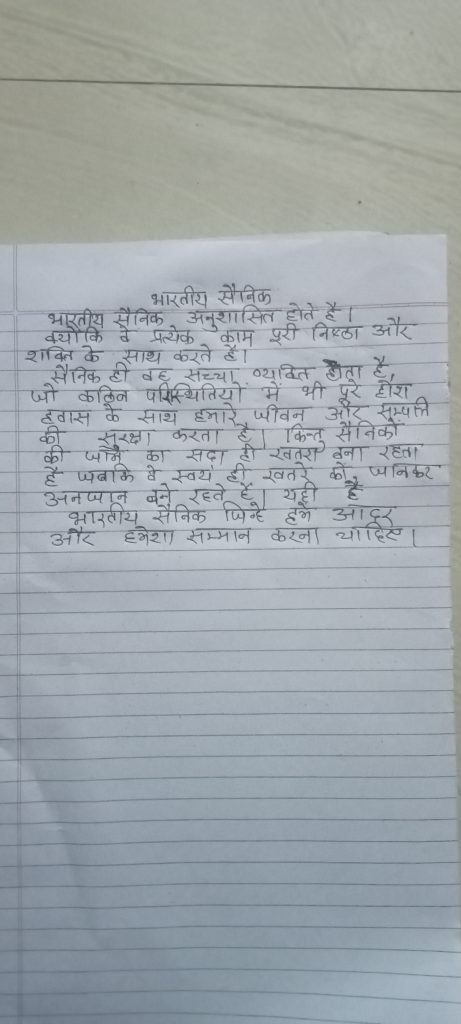 भारतीय सैनिक
भारतीय सैनिक अनुशासित होते है।
क्योंकि वे प्रत्येक काम पूरी निष्ठा और
शक्ति के साथ करते है।
सैनिक ही वह सच्चा व्यक्ति होता है,
जो कठिन परिस्थितियो में भी पूरे होश
हवास के साथ हमारे जीवन और सम्पति
की सुरक्षा करता है। किन्तु सैनिकों
की जान का सदा ही खतरा बना रहता
है जबकि वे स्वयं ही खतरे को जानकर
अनजान बने रहते है। यही है
भारतीय सैनिक जिन्हे हमे आदर
और हमेशा सम्मान करना चाहिए।